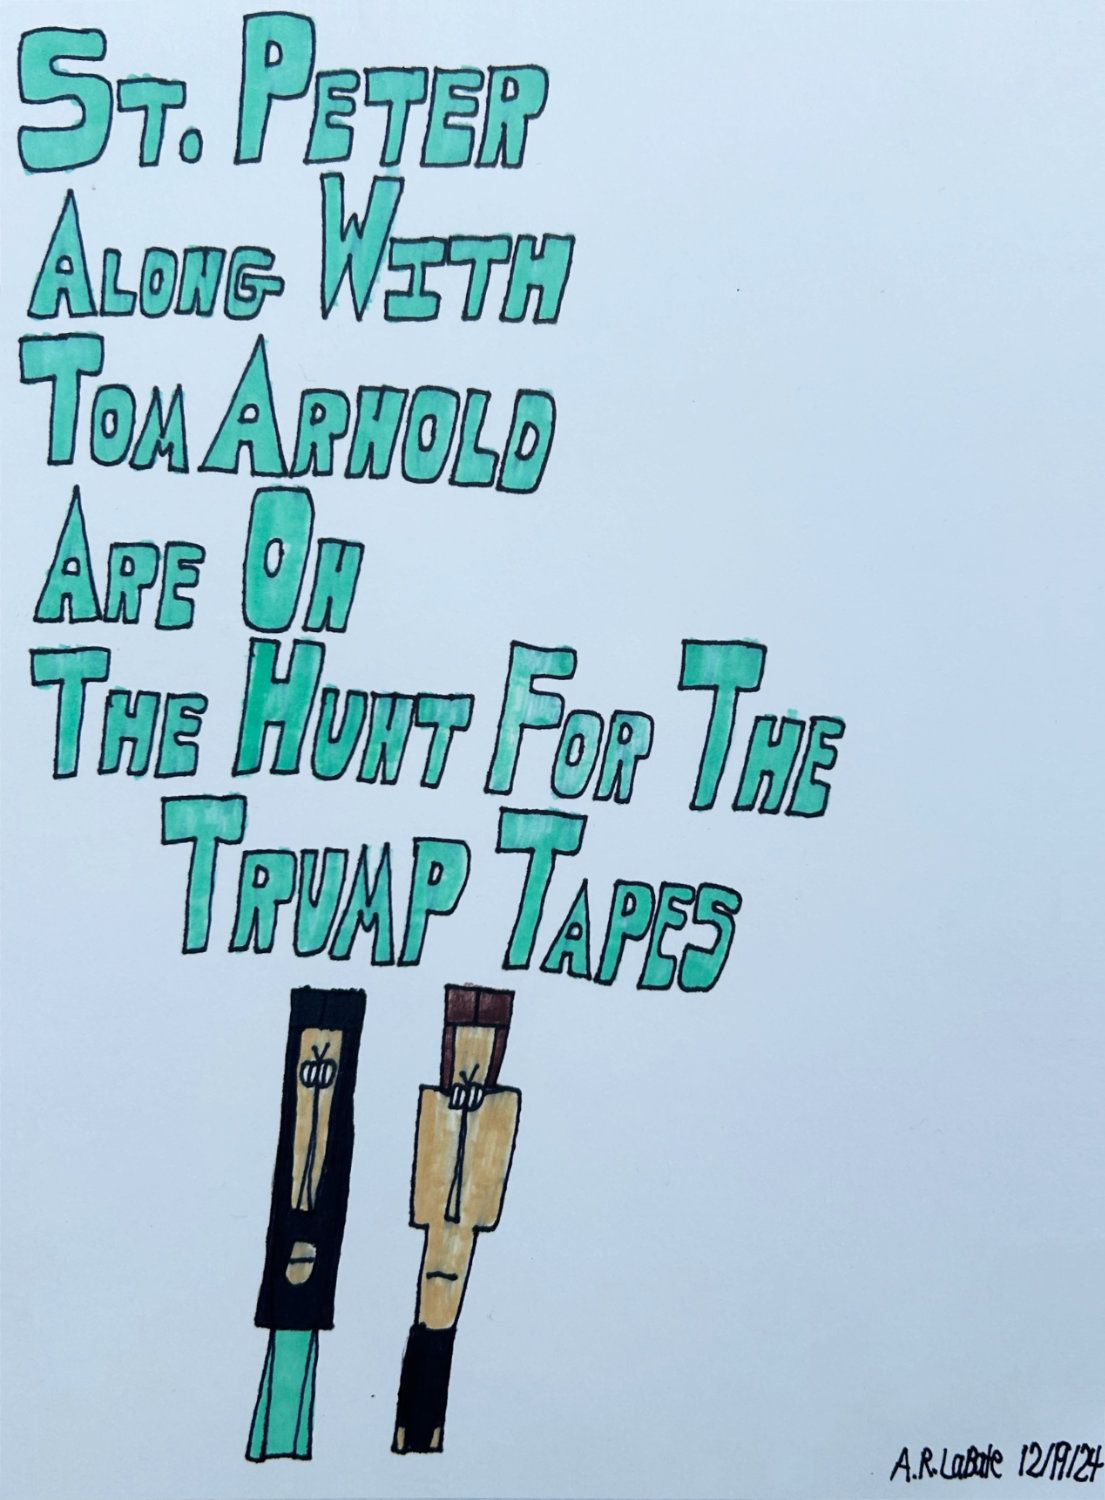 St. Peter
Along With
Tom Arnold
Are On
The Hunt For The
Trump Tapes
A.R. LaBate 12/19/24